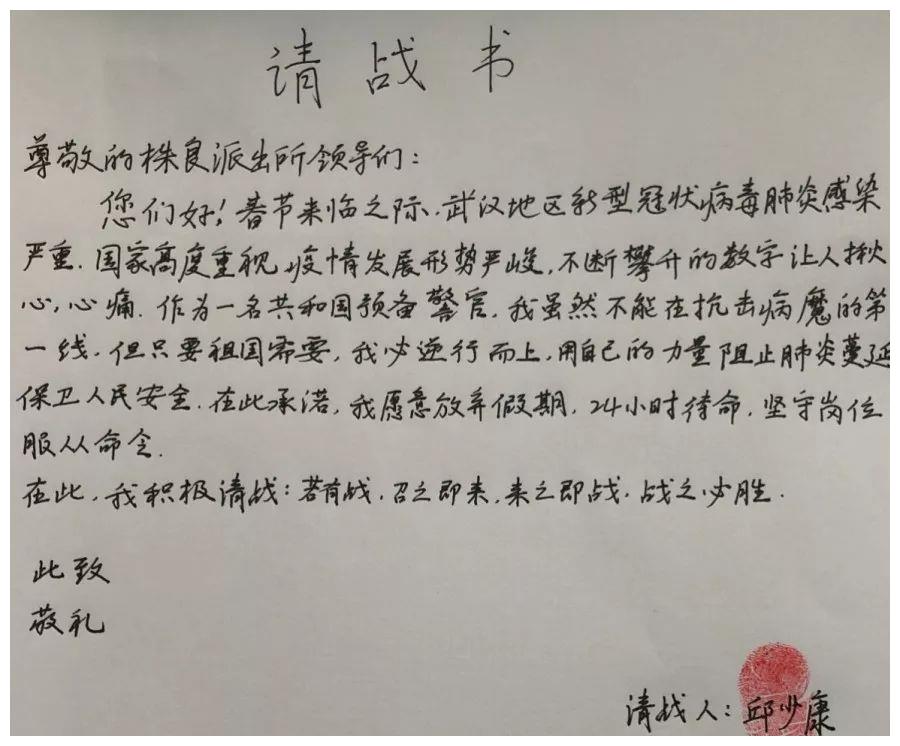 请战书
尊敬的株良派出所领导们：
您们好！春节来临之际，武汉地区新型冠状病毒肺炎感染
严重，国家高度重视，疫情发展形势严峻，不断攀升的数字让人揪
心，心痛．作为一名共和国预备警官，我虽然不能在抗击病魔的第
一线，但只要祖国需要，我必逆行而上，用自己的力量阻止肺炎蔓延
保卫人民安全．在此承诺，我愿意放弃假期，24小时待命，坚守岗位
服从命令．
在此，我积极请战：若有战，召之即来，来之即战，战之必胜．
此致
敬礼
请战人：邱少康